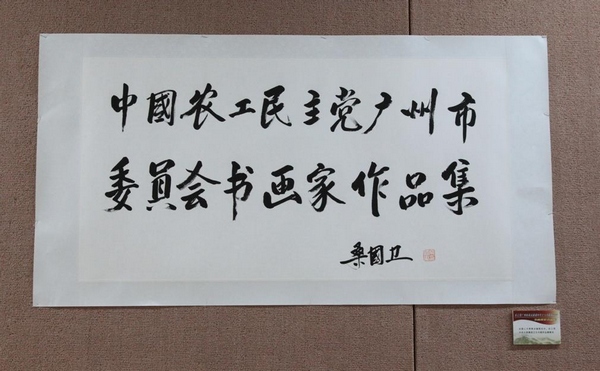 中國农工民主党广州市
委員会书画家作品集
桑國卫